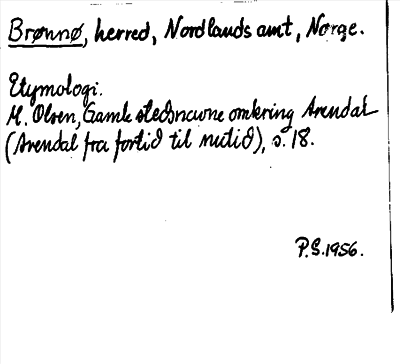 Brønnø, herred, Nordlands amt, Norge.
Etymologi.
M. Olsen, Gamle stedsnavne omkring Arendal
(Arendal fra fortid til nutid), s. 18.
P.S. 1956.